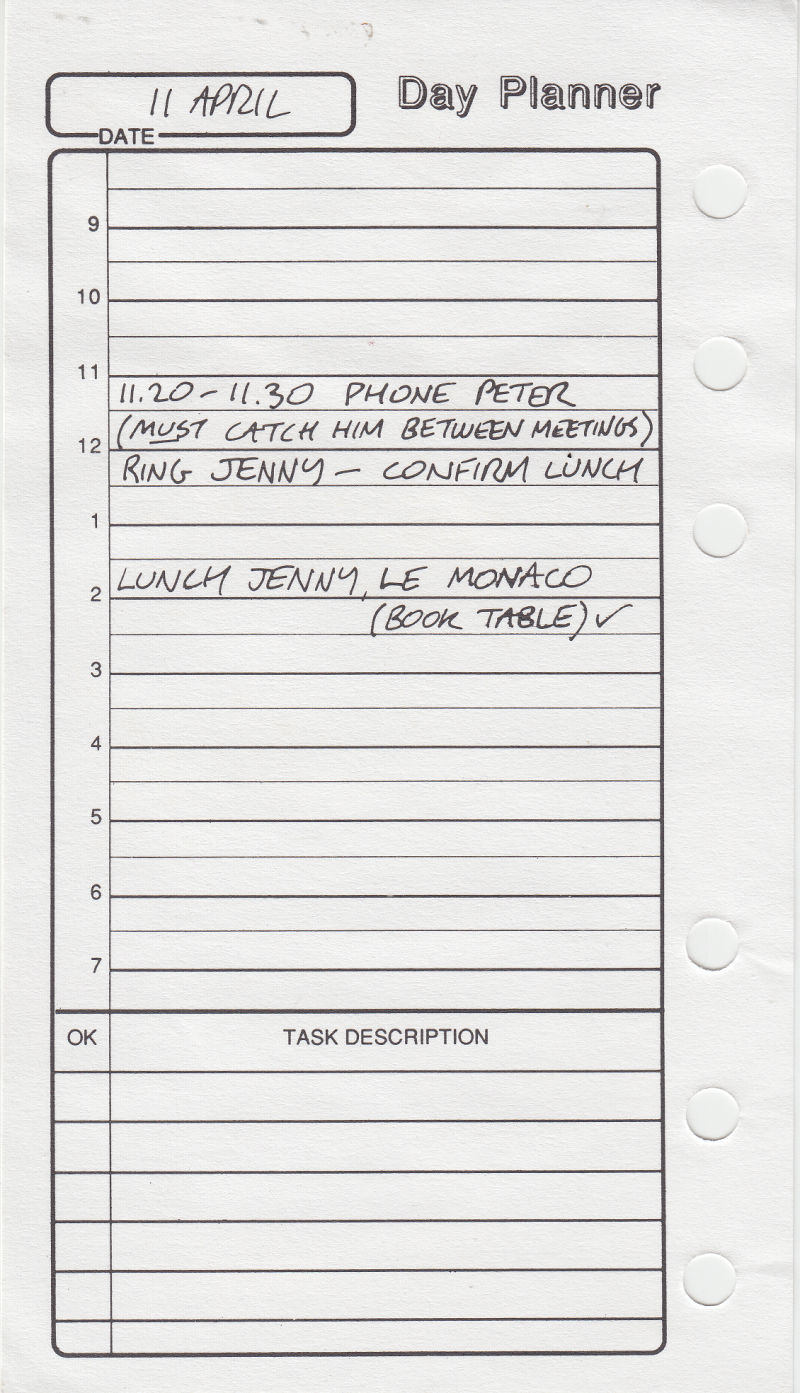 11 APRIL
Day Planner
DATE
9
10
11
11.20 - 11.30 PHONE PETER
(MUST CATCH HIM BETWEEN MEETINGS)
12
RING JENNY - CONFIRM LUNCH
1
LUNCH JENNY, LE MONACO
2
(BOOK TABLE) ✓
3
4
5
6
7
OK TASK DESCRIPTION